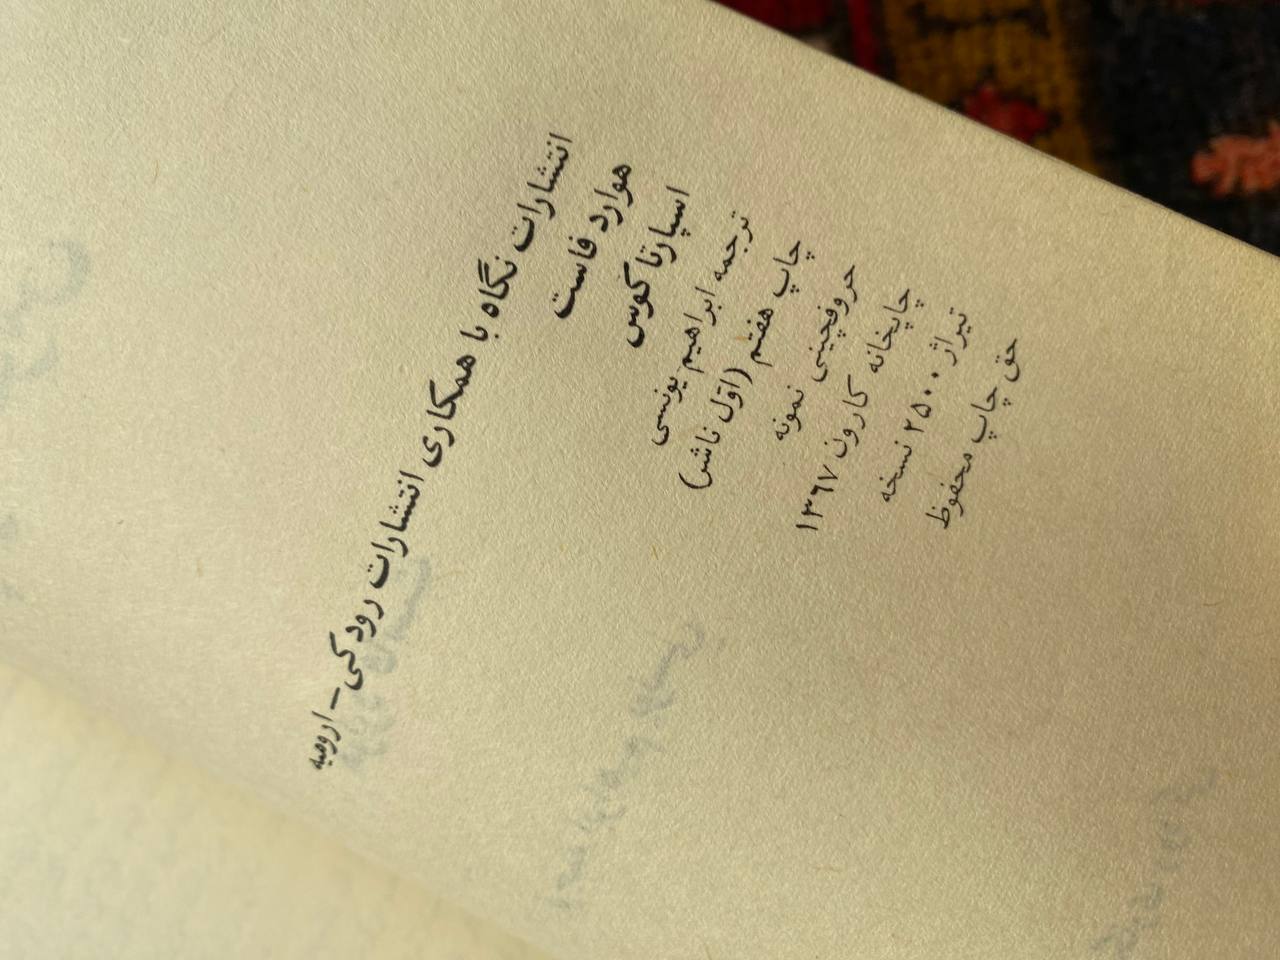 انتشارات نگاه با همکاری انتشارات رودکی - ارومیه
هوارد فاست
اسپارتاکوس
ترجمه ابراهیم یونسی
چاپ هفتم (اوّل ناشر)
حروفچینی نمونه
چاپخانه کارون ۱۳۶۷
تیراژ ۲۵۰۰ نسخه
حق چاپ محفوظ